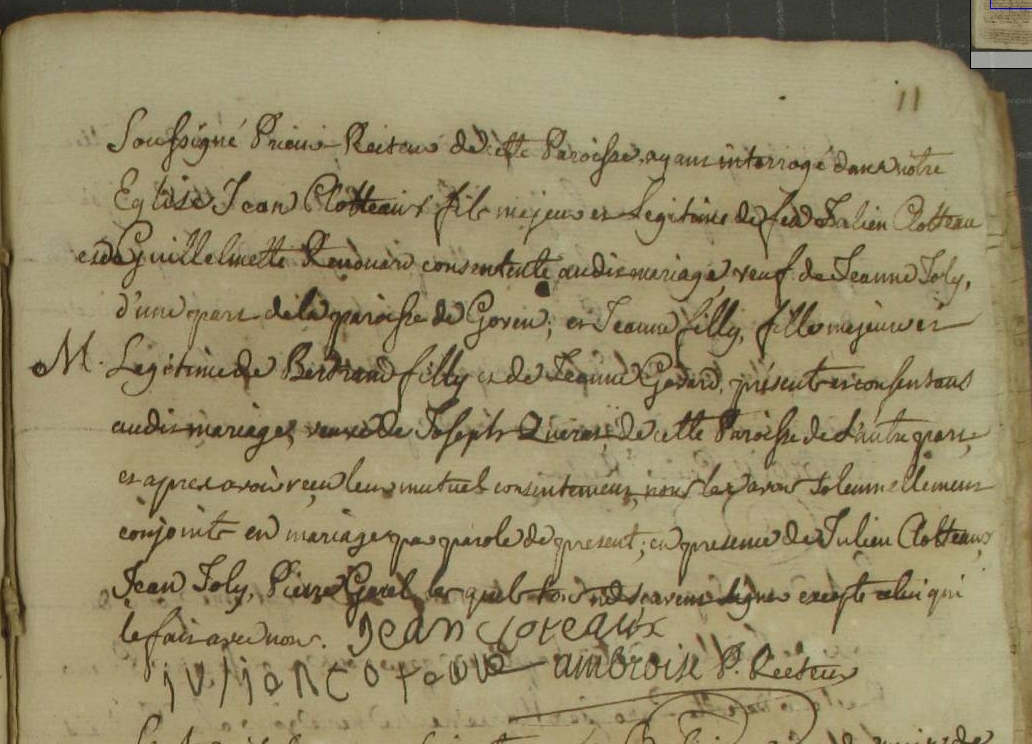 11
Soussigné Prieur Recteur de cette Paroisse, ayant interrogé dans nôtre
Eglise Jean Clotteaux fils majeur et Legitime de feu Julien Clotteau
et de Guillelmette Renouard consentente audit mariage, veuf de Jeanne Joly,
d'une part de la paroisse de Goven, et Jeanne filly, fille majeure et
M. Legitime de Bertrand filly et de Jeanne Godard, présents et consentans
audit mariage, veuve de Joseph de cette Paroisse de l'autre part,
et apres avoir reçu leur mutuel consentement, nous les avons solennellement
conjoints en mariage par parole de present, en presence de Julien Clotteaux,
Jean Joly, Pierre les quels ne scavent signer excepté celui qui
le fait avec nous. Jean Coteaux
julian Coteaux ambroise P. Recteur